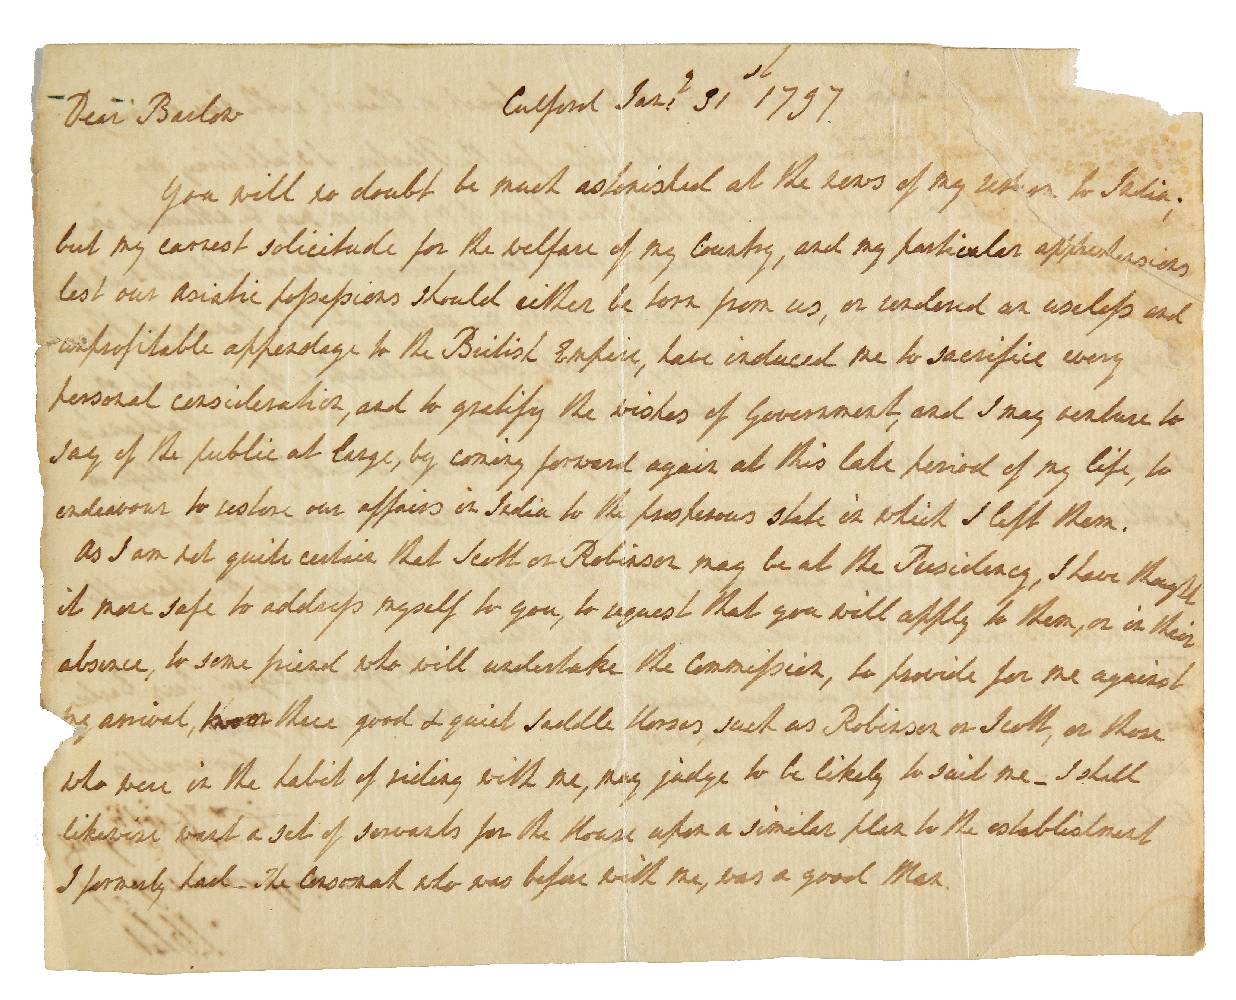 Dear Barlow
Culford Jan.y 31st 1797.
You will no doubt be much astonished at the news of my return to India;
but my earnest solicitude for the welfare of my Country, and my particular apprehensions
lest our Asiatic possessions should either be torn from us, or rendered an useless and
unprofitable appendage to the British Empire, have induced me to sacrifice every
personal consideration, and to gratify the wishes of Government, and I may venture to
say of the public at large, by coming forward again at this late period of my life, to
endeavour to restore our affairs in India to the prosperous state in which I left them.
As I am not quite certain that Scott or Robinson may be at the Presidency, I have thought
it more safe to address myself to you, to request that you will apply to them, or in their
absence, to some friend who will undertake the Commission, to provide for me against
my arrival, three good & quiet saddle Horses, such as Robinson or Scott, or those
who were in the habit of riding with me, may judge to be likely to suit me_ I shall
likewise want a set of servants for the House upon a similar plan to the establishment
I formerly had_ The Consomah who was before with me, was a good Man.